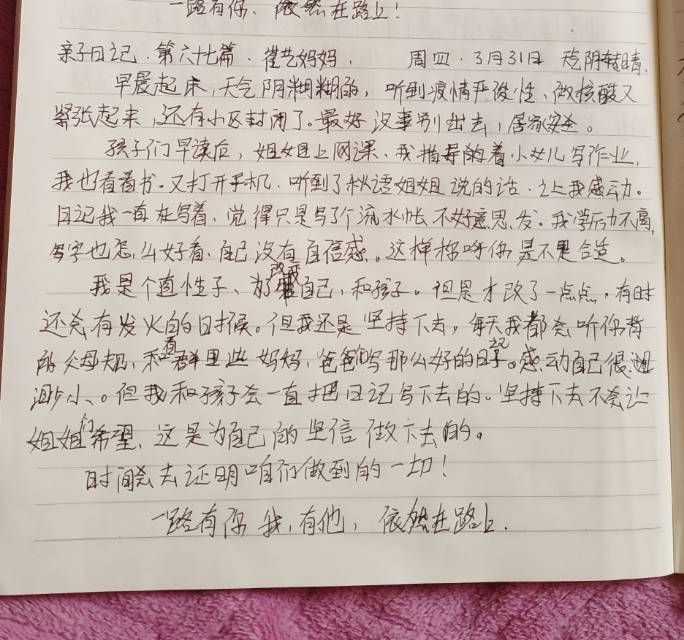 一路有你、依然在路上!
亲子日记.第六十七篇.崔艺妈妈. 周四.3月31日 阴转晴.
早晨起床,天气阴糊糊的,听到疫情严峻性、做核酸又
紧张起来,还有小区封闭了。最好没事别出去,居家安全。
孩子们早读后,姐姐上网课、我指导的着小女儿写作业,
我也看看书.又打开手机.听到了秋语姐姐说的话.让我感动.
日记我一直在写着,觉得只是写了个流水帐不好意思发.我学历不高,
写字也怎么好看.自己没有自信感.这样称呼你是不是合适.
我是个直性子、为改变自己,和孩子.但是才改了一点点,有时
还会有发火的时候。但我还是坚持下去,每天我都会听你背
的父母规、和看群里些妈妈,爸爸们写那么好的日记。感动自己很
渺小、。但我和孩子会一直把日记写下去的.坚持下去不会让
姐姐们希望、这是为自己的坚信做下去的。
时间会去证明咱们做到的一切!
一路有你我,有他,依然在路上.